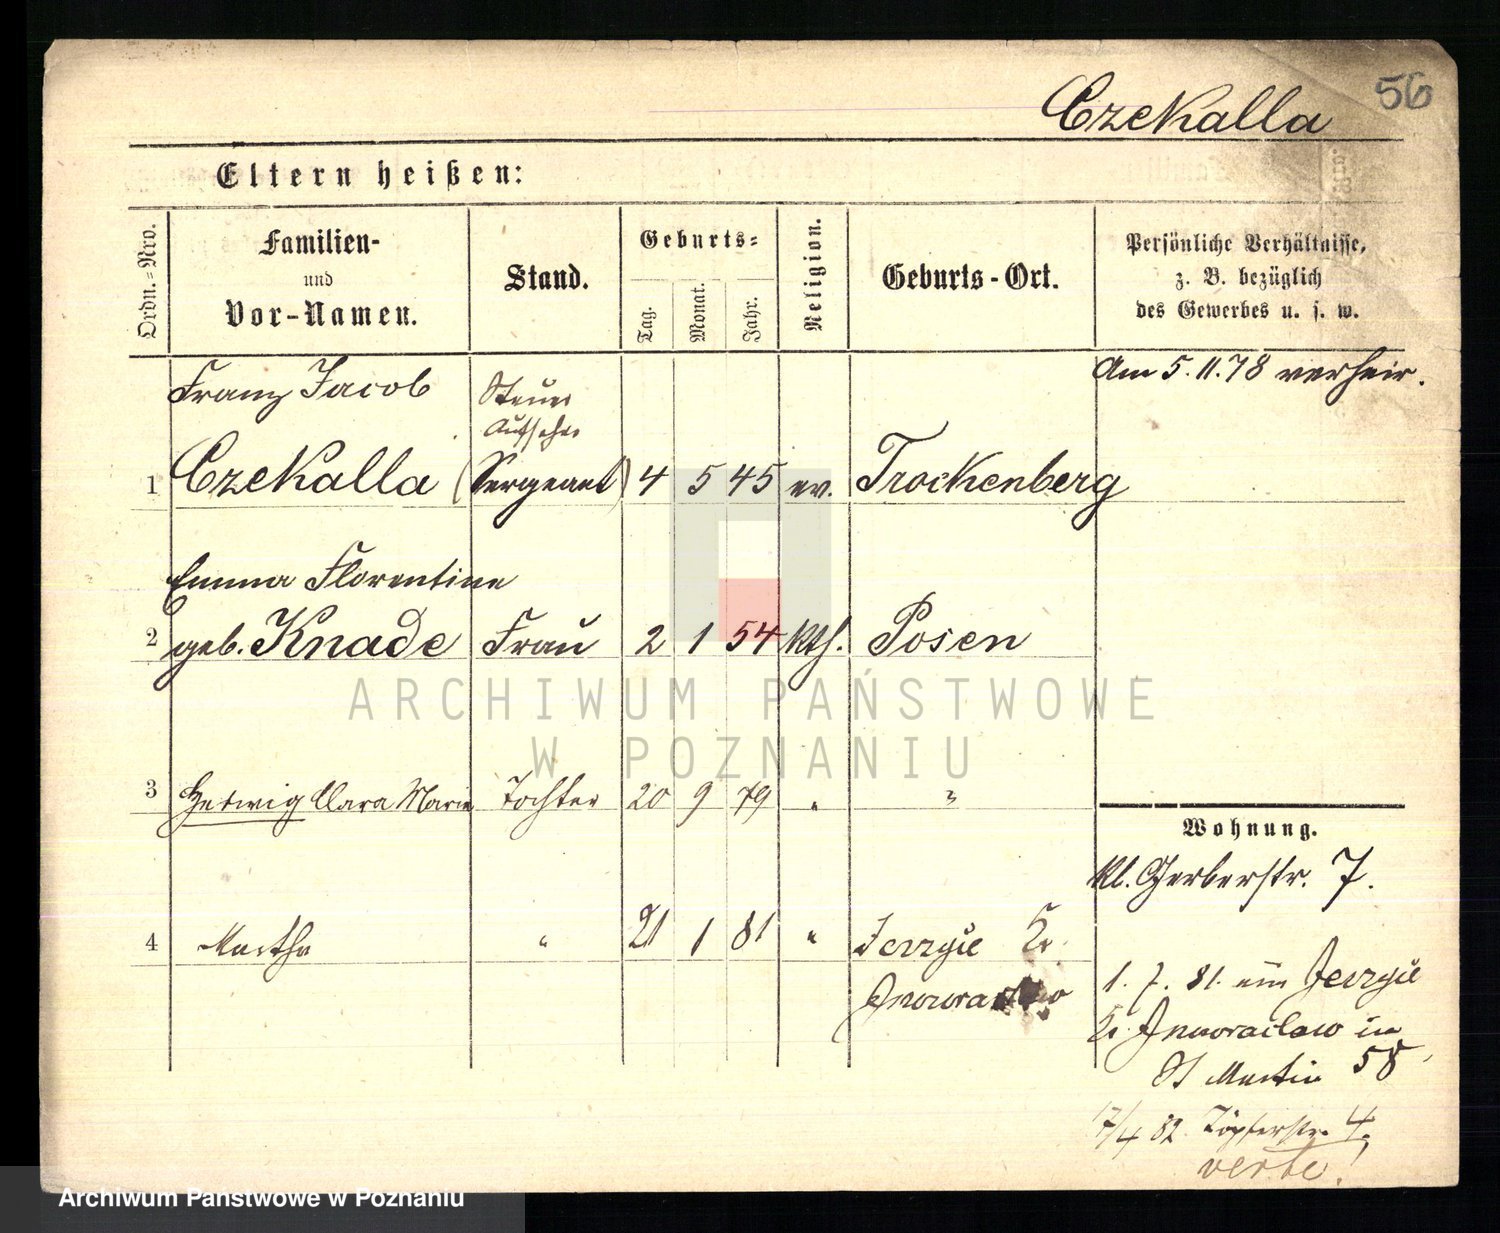 56
Czekalla
Eltern heißen:
Ordn.=Nro.
Familien-
und
Vor-Namen.
Stand.
Geburts=
Tag.
Monat.
Jahr.
Religion.
Geburts-Ort.
Persönliche Verhältnisse,
z. B. bezüglich
des Gewerbes u. s. w.
Am 5. 11. 78 verheir.
Franz Jacob Steuer
Aufseher
1 Czekalla (Sergeant) 4 5 45 ev. Trockenberg
Emma Florentine
2 geb. Knade Frau 2 1 54 kth. Posen
ARCHIWUM PAŃSTWOWE
W POZNANIU
3 Hedwig Clara Marie Tochter 20 9 79 " "
Wohnung.
kl. Gerberstr. 7.
4 Martha " 21 1 81 " Kr.
1. 7. 81.
Kr. Inowraclaw in
St Martin 58
17/4 82. Töpferstr. 4.
verte!
Archiwum Państwowe w Poznaniu